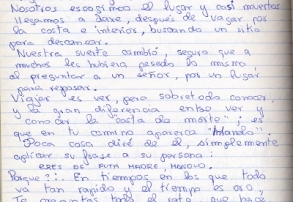 Nosotros escogimos el lugar y casi muertos
llegamos a      , después de vagar por
la costa e interior, buscando un sitio
para descansar.
Nuestra suerte cambió, seguro que a
muchos les hubiera pasado lo mismo:
al preguntar a un señor, por un lugar
para reposar.
Viajar es ver, pero sobretodo conocer,
y la gran diferencia entre ver y
conocer la "costa da morte"; es
que en tu camino aparezca "Manolo".
Poca cosa diré de él, simplemente
aplicar su frase a su persona:
ERES DE PUTA MADRE, MANOLO.
Porque?... En tiempos en los que todo
va tan rapido y el tiempo es oro,
Te                 todo el rato que hace